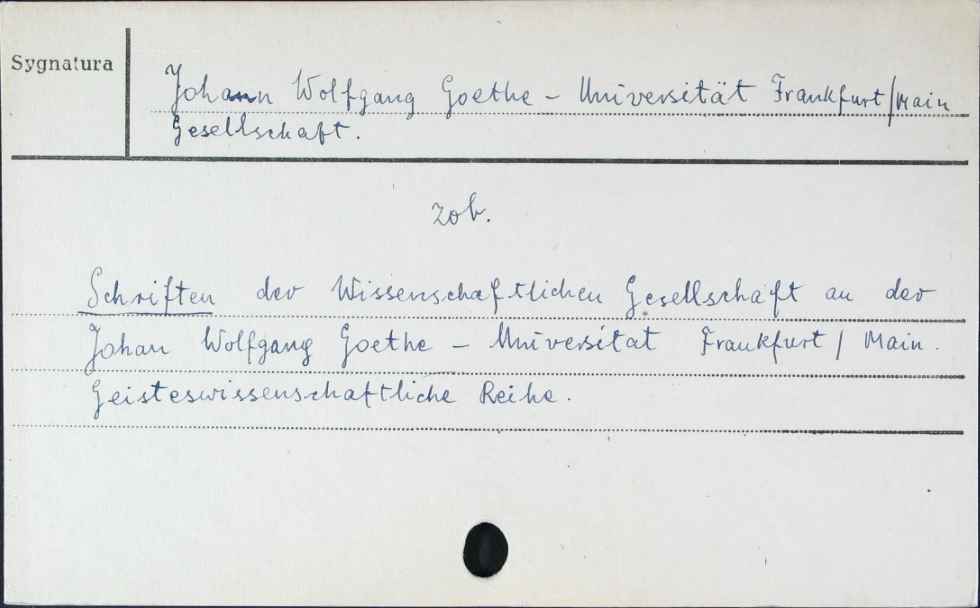 Sygnatura
Johann Wolfgang Goethe - Universität Frankfurt/Main
Gesellschaft.
zob.
Schriften der Wissenschaftlichen Gesellschaft an der
Johan Wolfgang Goethe - Universität Frankfurt/Main.
Geisteswissenschaftliche Reihe.